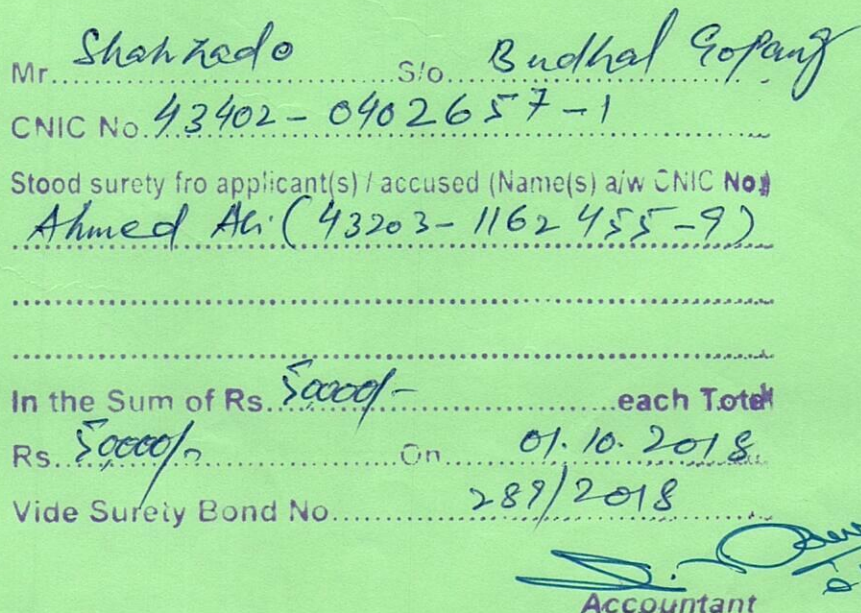 Mr. Shahzado S/o. Budhal Gopang
CNIC No. 43402-0402657-1
Stood surety fro applicant(s) / accused (Name(s) a/w CNIC No.)
Ahmed Ali (43203-1162455-9)
In the Sum of Rs. 50000/- each Total
Rs. 50000/- On 01.10.2018
Vide Surety Bond No. 289/2018
Accountant